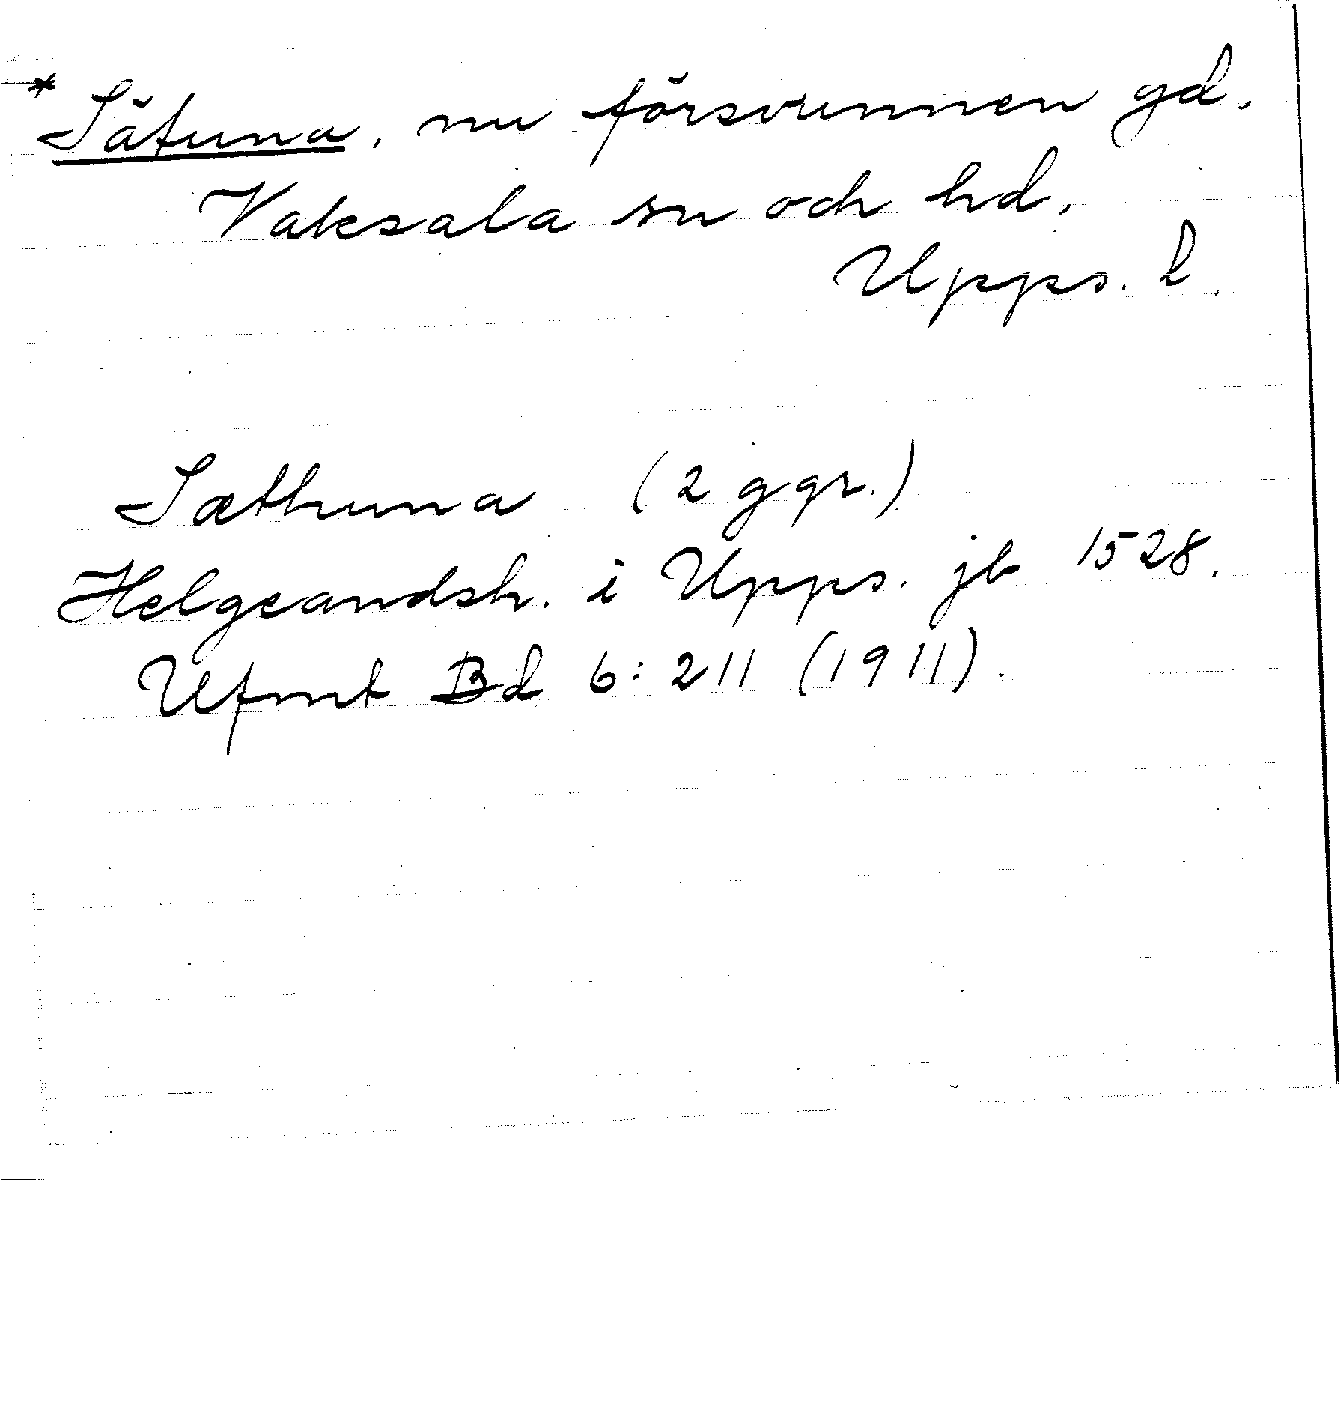 * Sätuna, nu försvunnen gd.
Vaksala sn och hd,
Upps. l.
Sæthuna (2 ggr.)
Helgeandsh. i Upps. jb 1528.
Ufmt Bd 6:211 (1911).